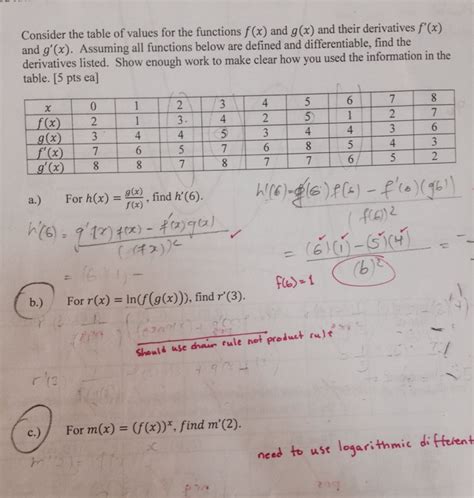 Consider the table of values for the functions f(x) and g(x) and their derivatives f'(x)
and g'(x). Assuming all functions below are defined and differentiable, find the
derivatives listed. Show enough work to make clear how you used the information in the
table. [5 pts ea]
x 0 1 2 3 4 5 6 7 8
f(x) 2 1 3 4 2 5 1 2 7
g(x) 3 4 4 5 3 4 4 3 6
f'(x) 7 6 5 7 6 8 5 4 3
g'(x) 8 8 7 8 7 7 6 5 2
a.) For h(x) = g(x)/f(x), find h'(6).
h'(6) = g'(6) f(6) - f'(6)(g(6)) / (f(6))²
h'(6) = g'(x) f(x) - f'(x) g(x) / (f(x))²
= (6)(1) - (5)(4) / (6)² =
f(6) = 1
b.) For r(x) = ln(f(g(x))), find r'(3).
Should use chain rule not product rule
c.) For m(x) = (f(x))ˣ, find m'(2).
need to use logarithmic different